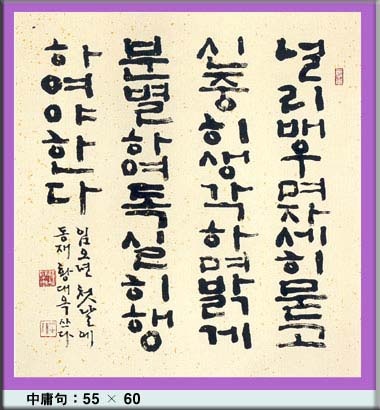 널리배우며자세히묻고
신중히생각하며밝게
분별하여독실히행
하여야한다
임오년 첫날에
동재 황대우 쓰다
中庸句 : 55 × 60